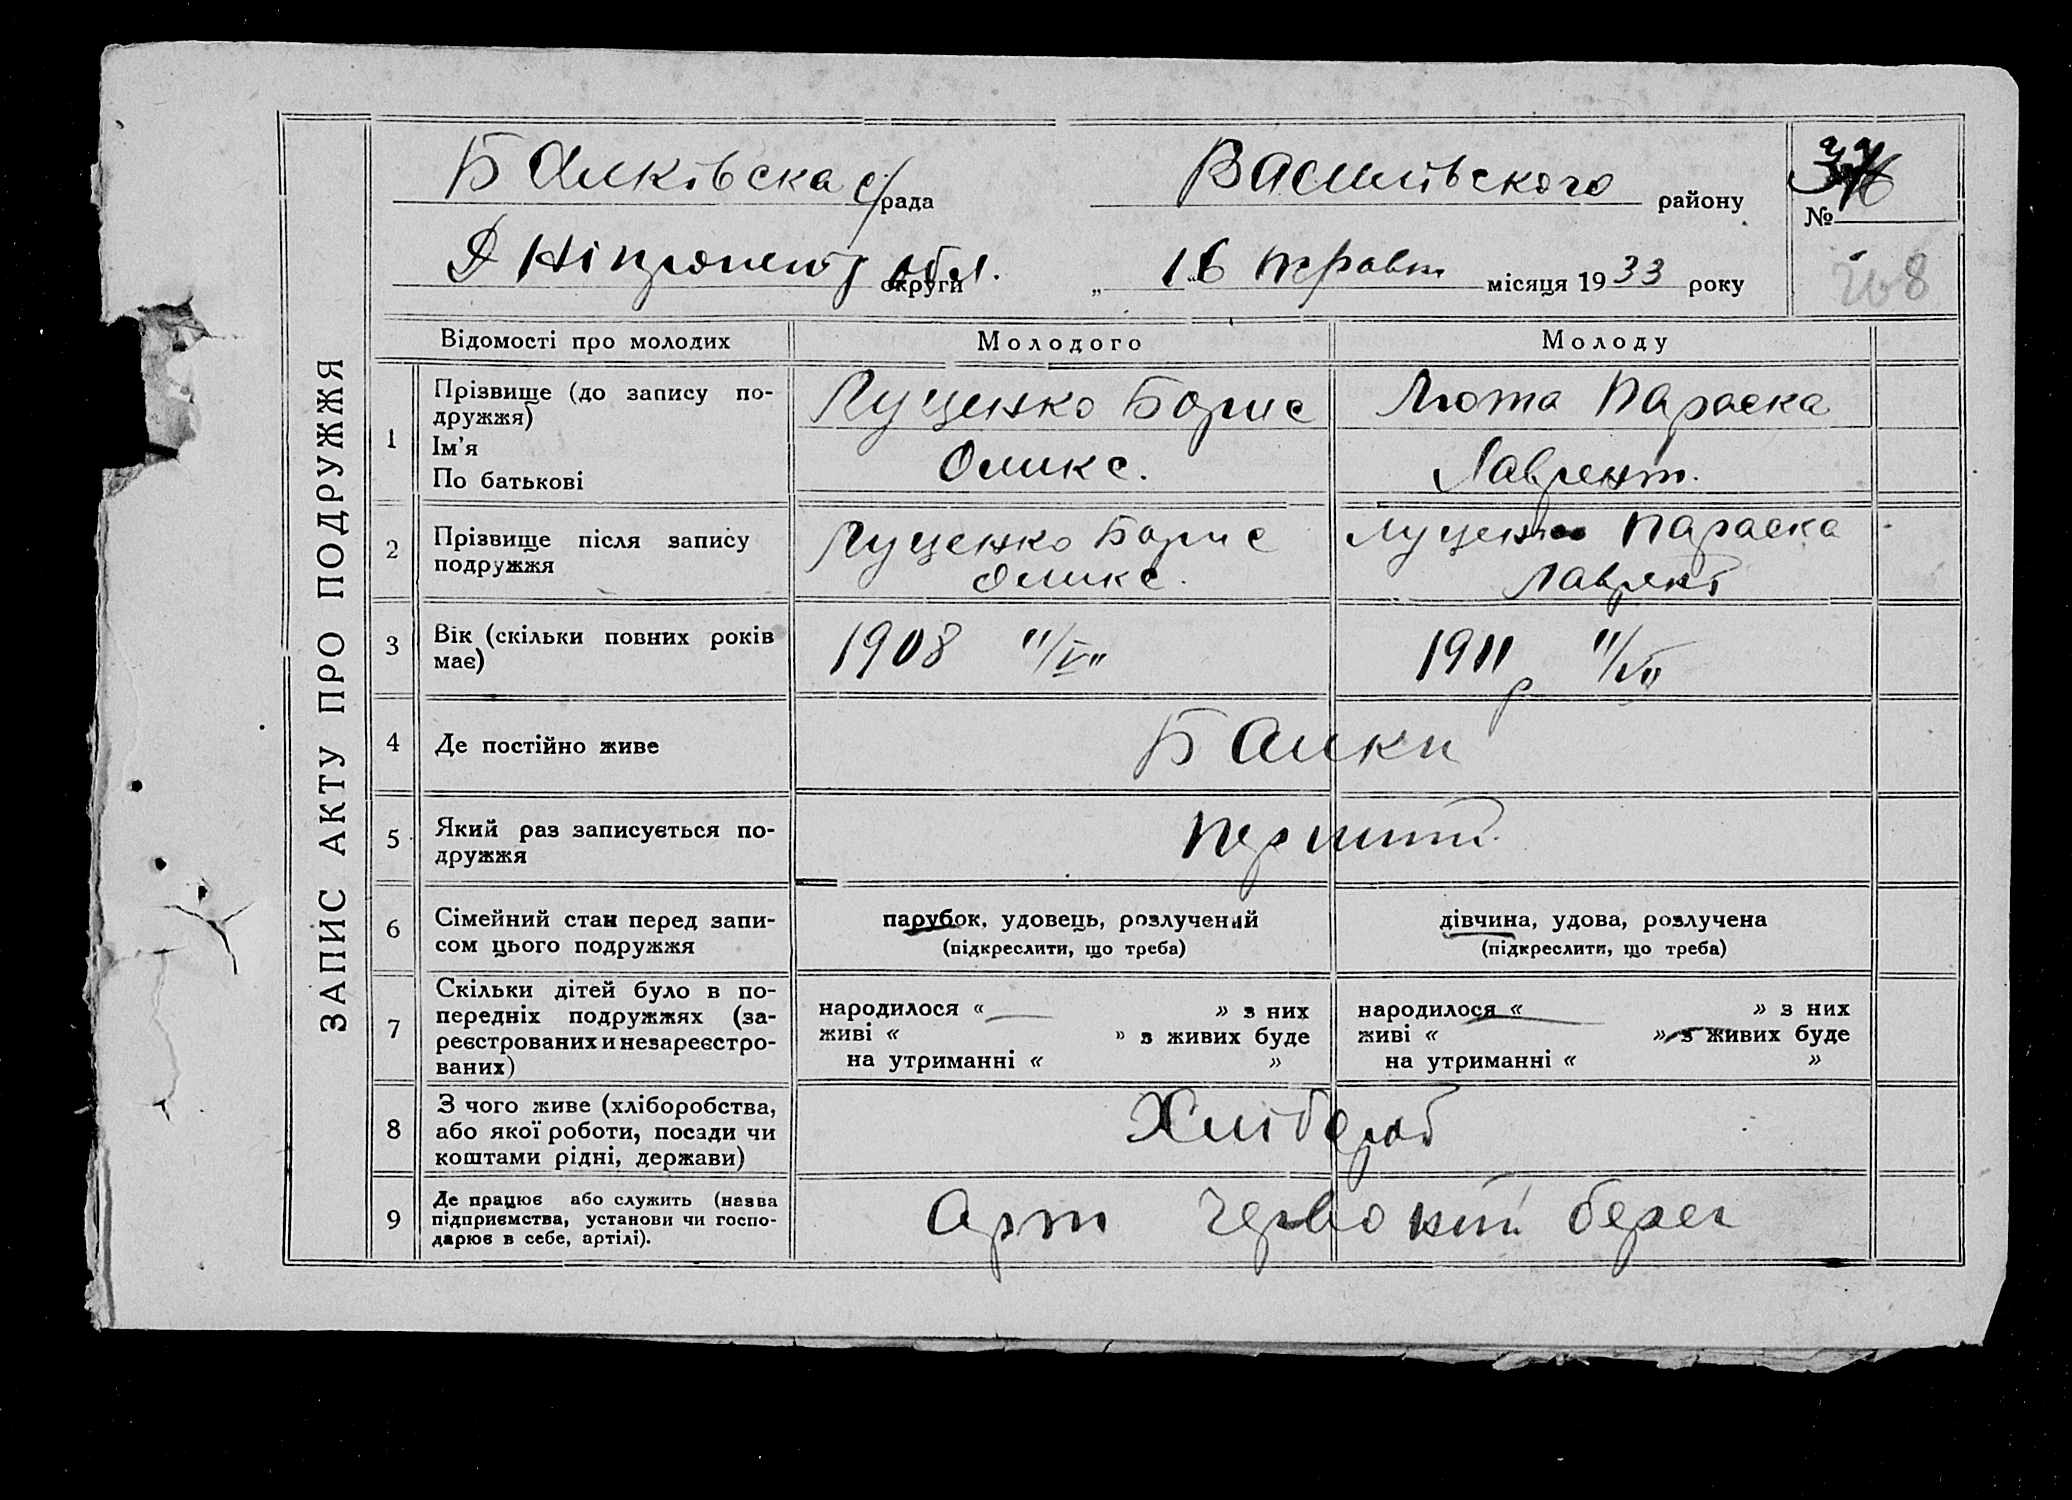 ЗАПИС АКТУ ПРО ПОДРУЖЖЯ
Балківска с/рада Василівського району
№
Дніпропет обл. округи „16 травт місяця 1933 року
268
Відомості про молодих Молодого Молоду
1 Прізвище (до запису по-
дружжя)
Ім'я
По батькові
Луценко Борис
Оликс.
Люта Параска
Лаврент.
2 Прізвище після запису
подружжя
Луценко Борис
Оликс.
Луценко Параска
Лаврент
3 Вік (скільки повних років
має)
1908
1911 р
4 Де постійно живе Балки
5 Який раз записується по-
дружжя
перший
6 Сімейний стан перед запи-
сом цього подружжя
парубок, удовець, розлучений
(підкреслити, що треба)
дівчина, удова, розлучена
(підкреслити, що треба)
7 Скільки дітей було в по-
передніх подружжях (за-
реєстрованих и незареєстро-
ваних)
народилося « » з них
живі « » з живих буде
на утриманні « »
народилося « » з них
живі « » з живих буде
на утриманні « »
8 З чого живе (хліборобства,
або якої роботи, посади чи
коштами рідні, держави)
Хлібороб
9 Де працює або служить (назва
підприємства, установи чи госпо-
дарює в себе, артілі).
Арт Червоний берег